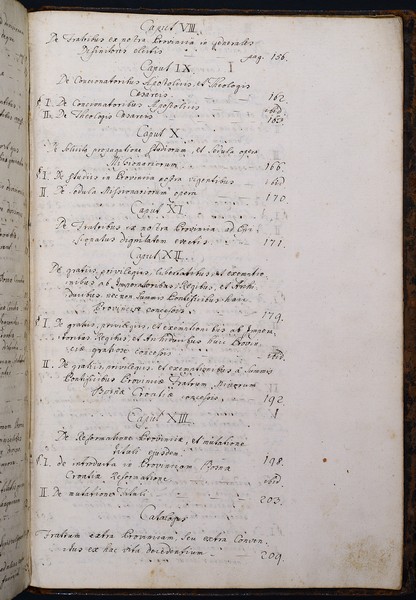 Caput VIII.
De Fratribus ex nostra Provincia in generales
Definitores electis pag. 156.
Caput IX
De Concionatoribus Apostolicis, et Theologis
Caesareis 162.
§ I. De Concionatoribus Apostolicis ibid.
II. De Theologis Caesareis
Caput X.
De propagatione studiorum, et sedula opera
Missionariorum 166.
§ I. De studiis in Provincia nostra vigentibus ibid
II. De sedula Missionariorum opera 170.
Caput XI.
De Fratribus ex nostra Provincia ad
dignitatem evectis 171.
Caput XII.
De gratiis, privilegiis, libertatibus, et exemptio
nibus ab Imperatoribus, Regibus, et Archi
ducibus, necnon Summis Pontificibus huic
Provinciae concessis 179.
§ I. De gratiis, privilegiis, et exemptionibus ab Impera
toribus, Regibus, et Archiducibus huic Provin
ciae gratiose concessis ibid.
II. De gratiis, privilegiis, et exemptionibus a Summis
Pontificibus Provinciae Fratrum Minorum
Bosnae Croatiae concessis 192.
Caput XIII.
De Reformatione Provinciae, et mutatione
tituli ejusdem 198.
§ I. de introducta in Provinciam Bosnae
Croatiae Reformatione ibid.
II. De mutatione tituli 203.
Catalogus
Fratrum extra Provinciam, seu extra Conven
tus ex hac vita decedentium 209.